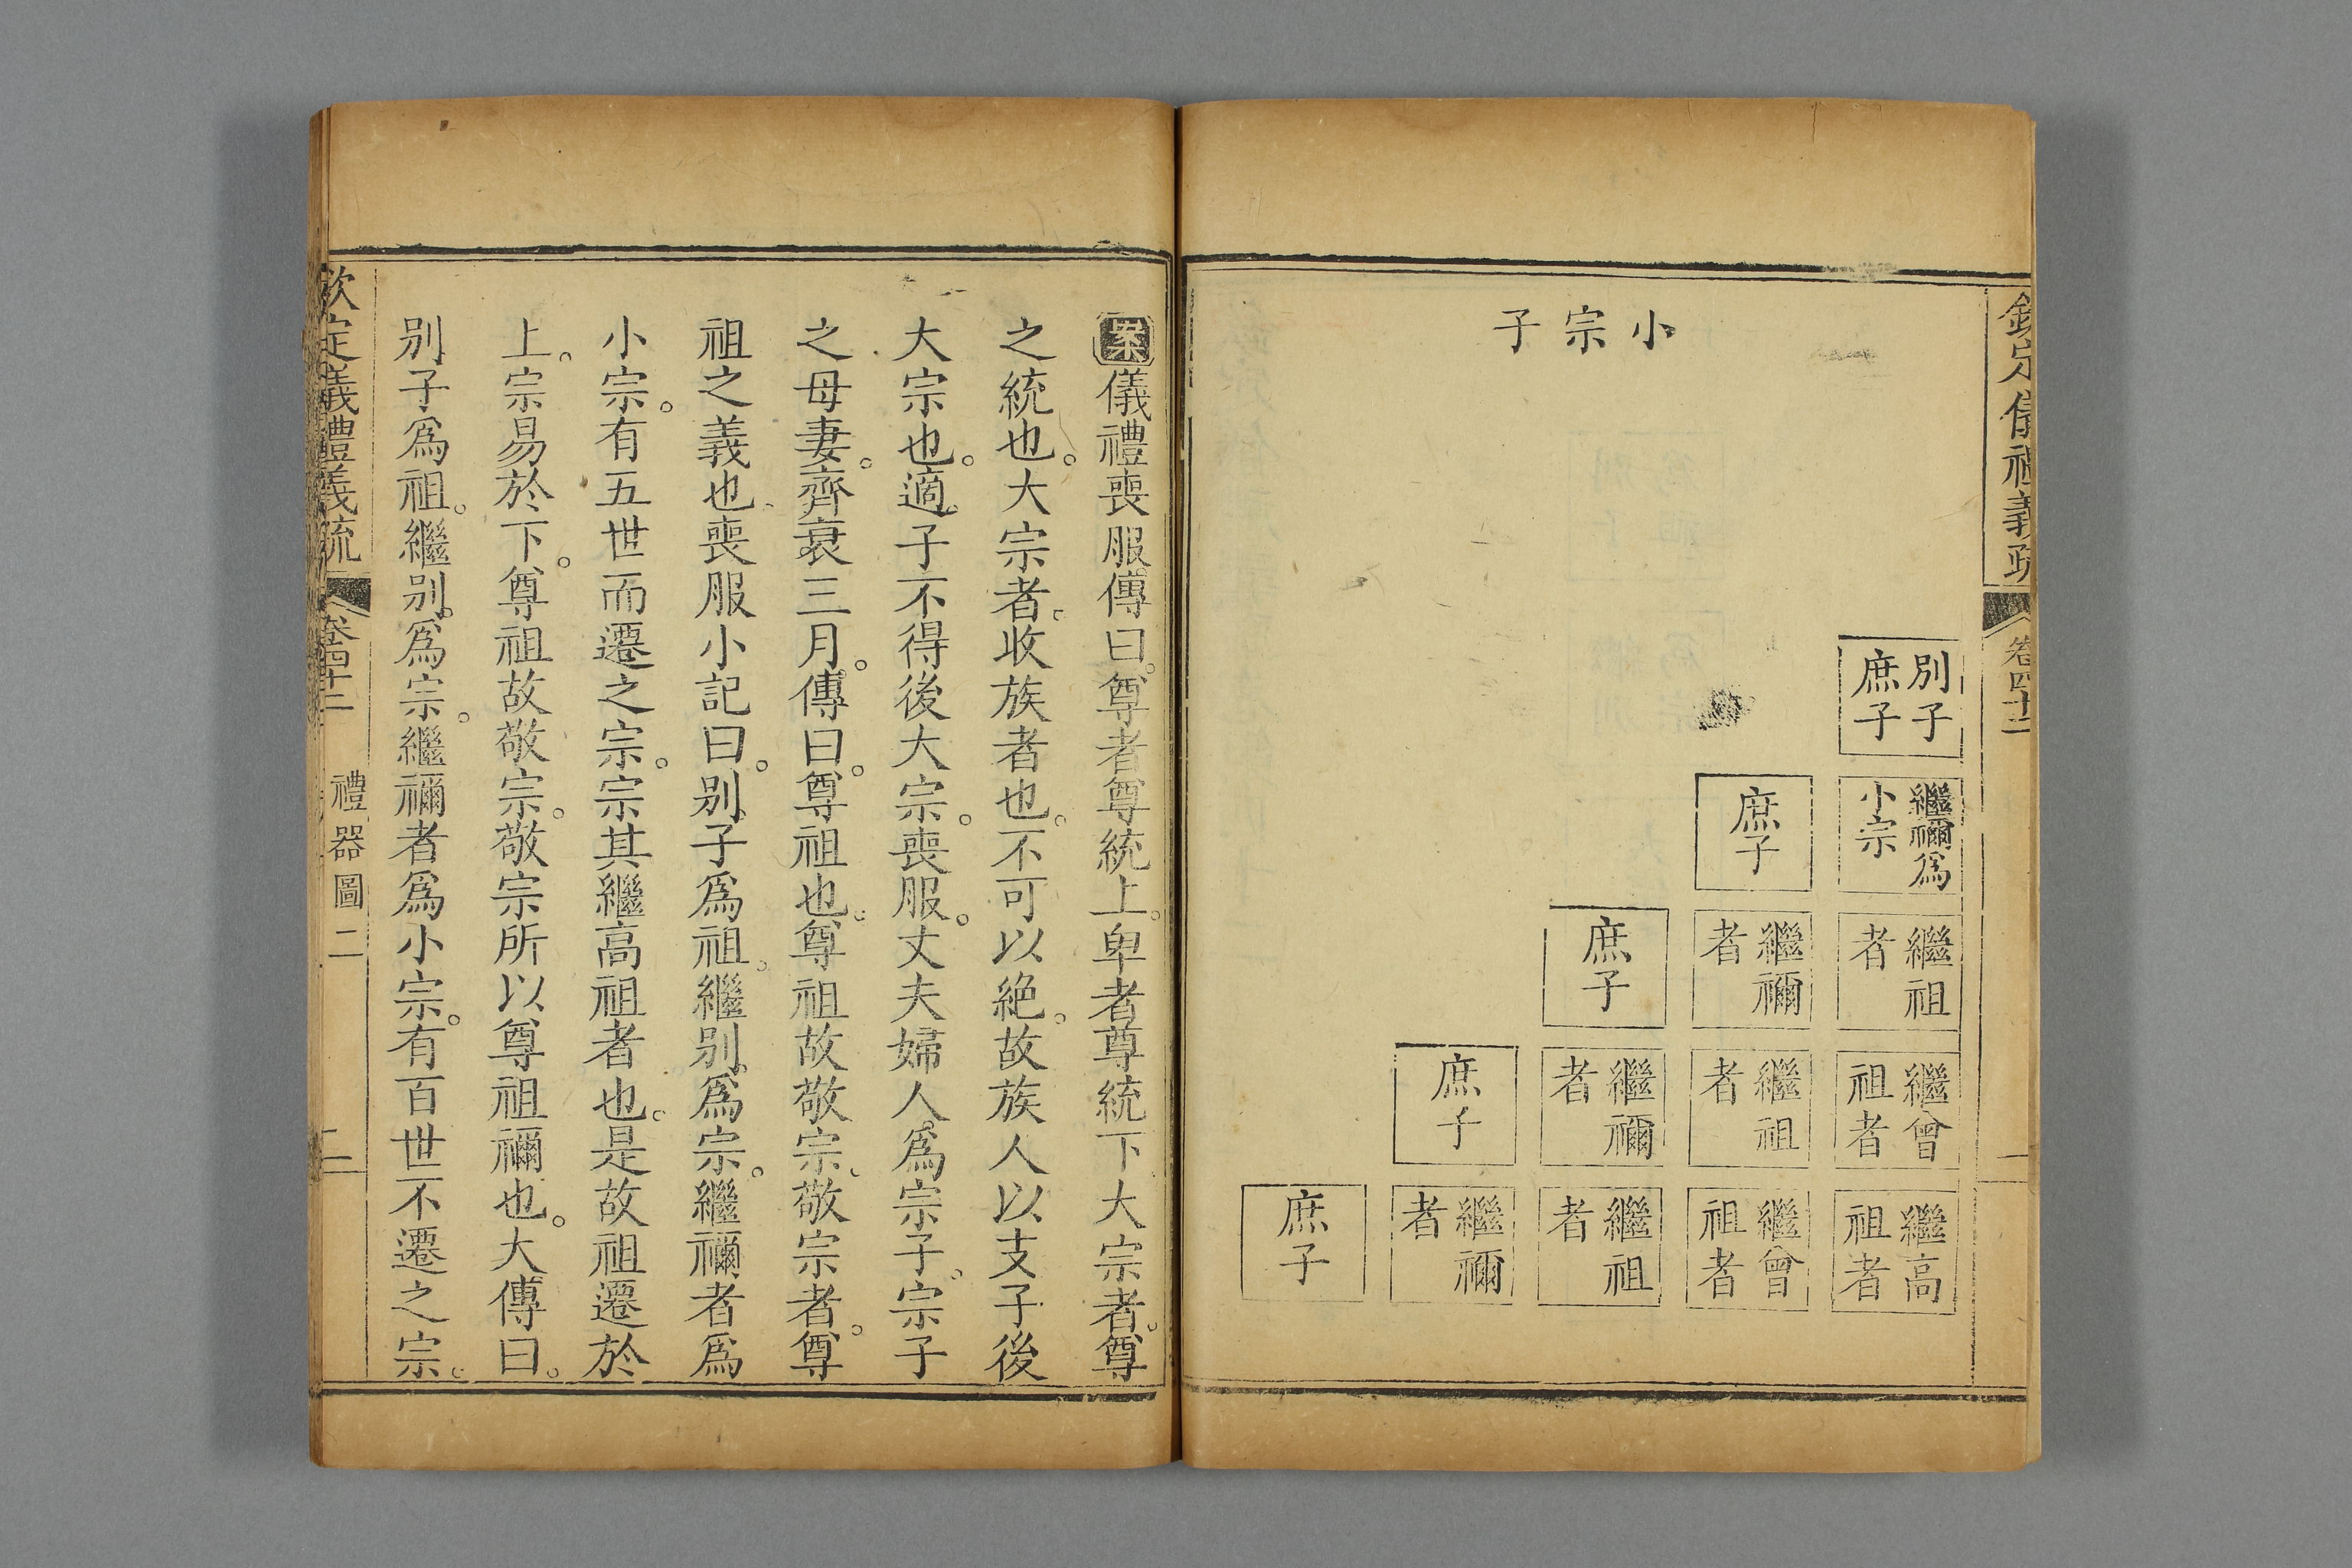 欽定儀禮義疏
卷四十二
一
小宗子
別子
庶子
繼禰爲
小宗
繼祖
者
繼曾
祖者
繼高
祖者
庶子
繼禰
者
繼祖
者
繼曾
祖者
庶子
繼禰
者
繼祖
者
庶子
繼禰
者
庶子
案儀禮喪服傳曰。尊者尊統上。卑者尊統下大宗者。尊
之統也。大宗者。收族者也。不可以絕。故族人以支子後
大宗也。適。子不得後大宗。喪服。丈夫婦人爲宗子。宗子
之母妻。齊衰三月。傳曰。尊祖也。尊祖故敬宗。敬宗者。尊
祖之義也、喪服小記曰。別子爲祖。繼別爲宗。繼禰者爲
小宗。有五世而遷之宗。宗其繼高祖者也。是故祖遷於
上。宗易於下。尊祖故敬宗。敬宗所以尊祖禰也。大傳曰。
別子爲祖。繼別。爲宗。繼禰者爲小宗。有百世不遷之宗。
欽定義禮義疏
卷四十二
禮器圖二
二